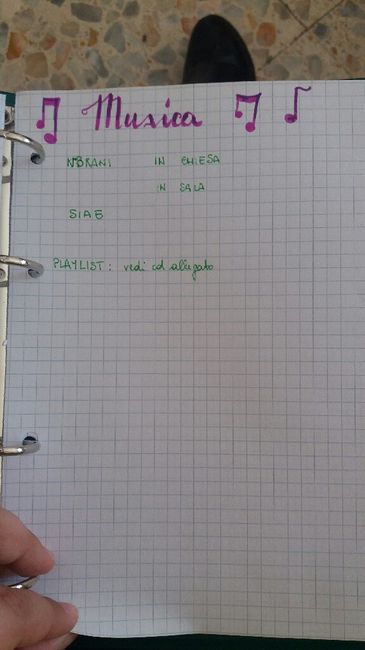 Musica
N°BRANI IN CHIESA
IN SALA
SIAE
PLAYLIST: vedi cd allegato